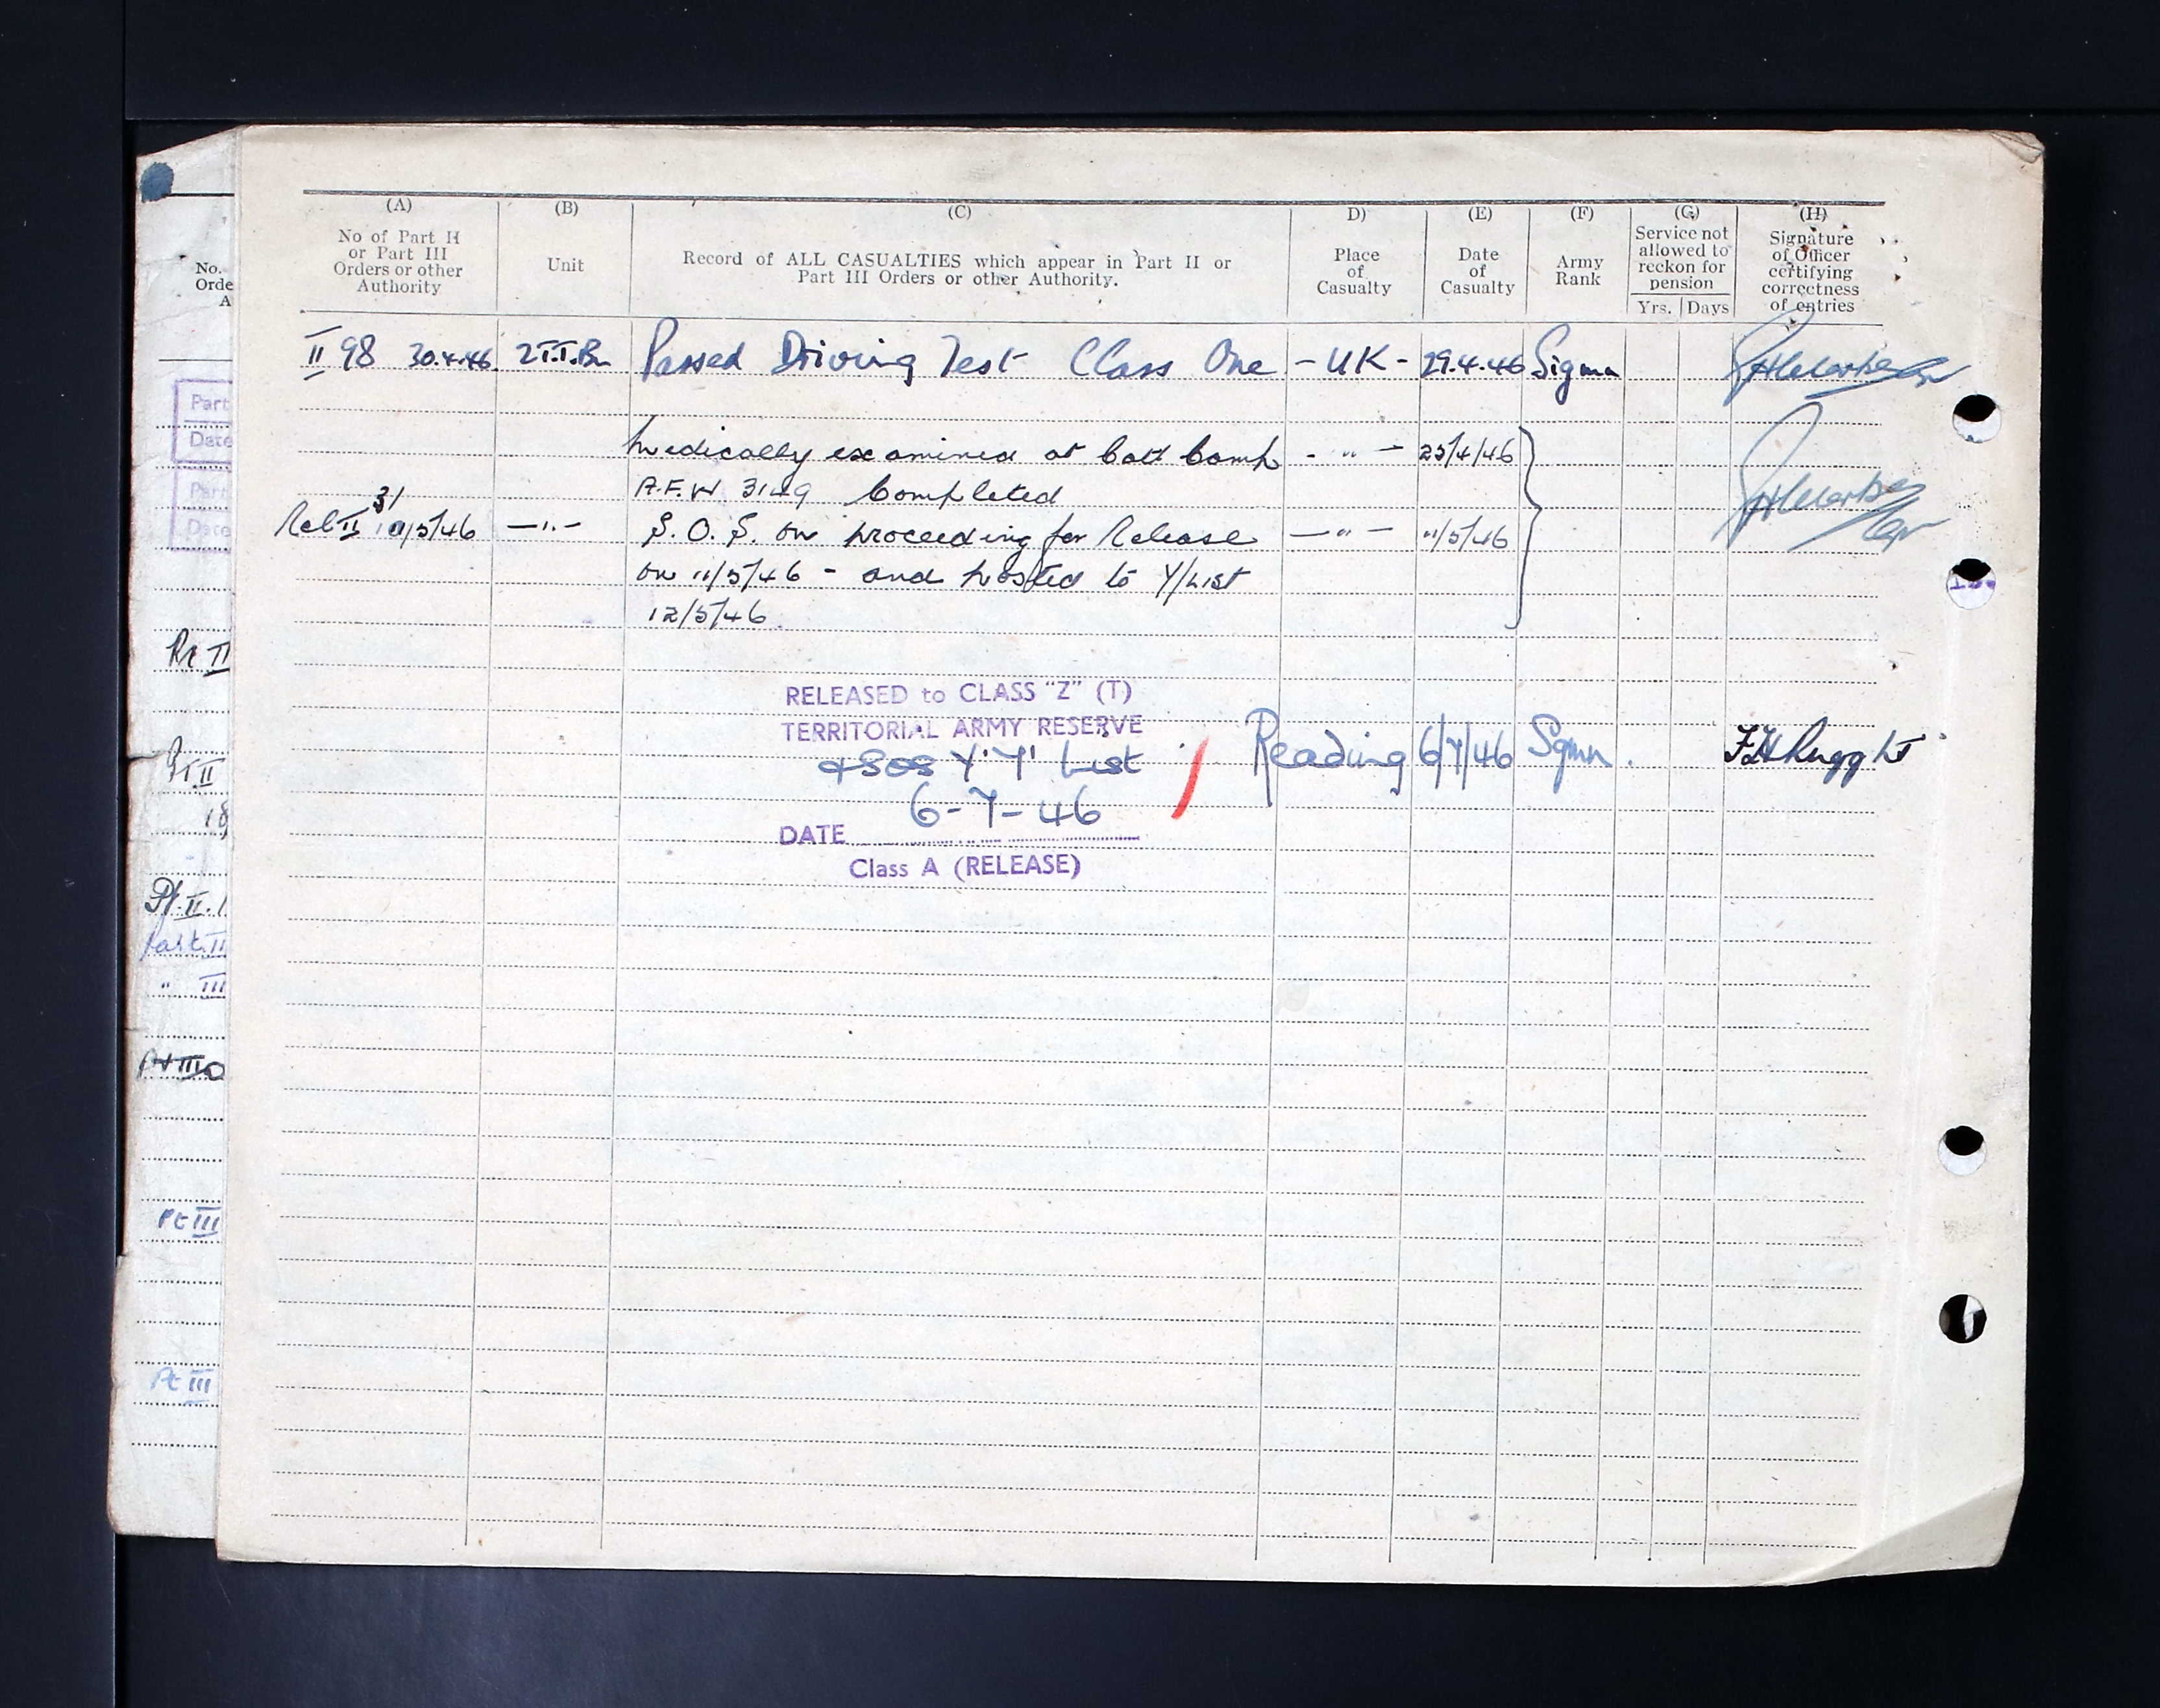 (A) (B) (C) D) (E) (F) (G) (H)
No of Part II or Part III Orders or other Authority
Unit
Record of ALL CASUALTIES which appear in Part II or
Part III Orders or other Authority.
Place of Casualty
Date of Casualty
Army Rank
Service not allowed to reckon for pension
Yrs. Days
Signature of Officer certifying correctness of entries
No.
Orde
A
II 98 30.4.46 2 T.T.Bn Passed Driving Test Class One - UK - 29.4.46 Sigmn
Part
Date
Medically examined at Batt Comp - " - 25/4/46
A.F.W 3149 Completed
Part
Date
Rel II 31 10/5/46 -"- S.O.S. on proceeding for Release -"- 11/5/46
on 11/5/46 - and posted to Y/List
12/5/46.
II
RELEASED to CLASS "Z" (T)
TERRITORIAL ARMY RESERVE
& SOS 'Y' List / Reading 6/7/46 Sgmn.
II
6-7-46
18
DATE
Class A (RELEASE)
Pt. II. 1
Part. II
" III
Pt III
Pt III
Pt III